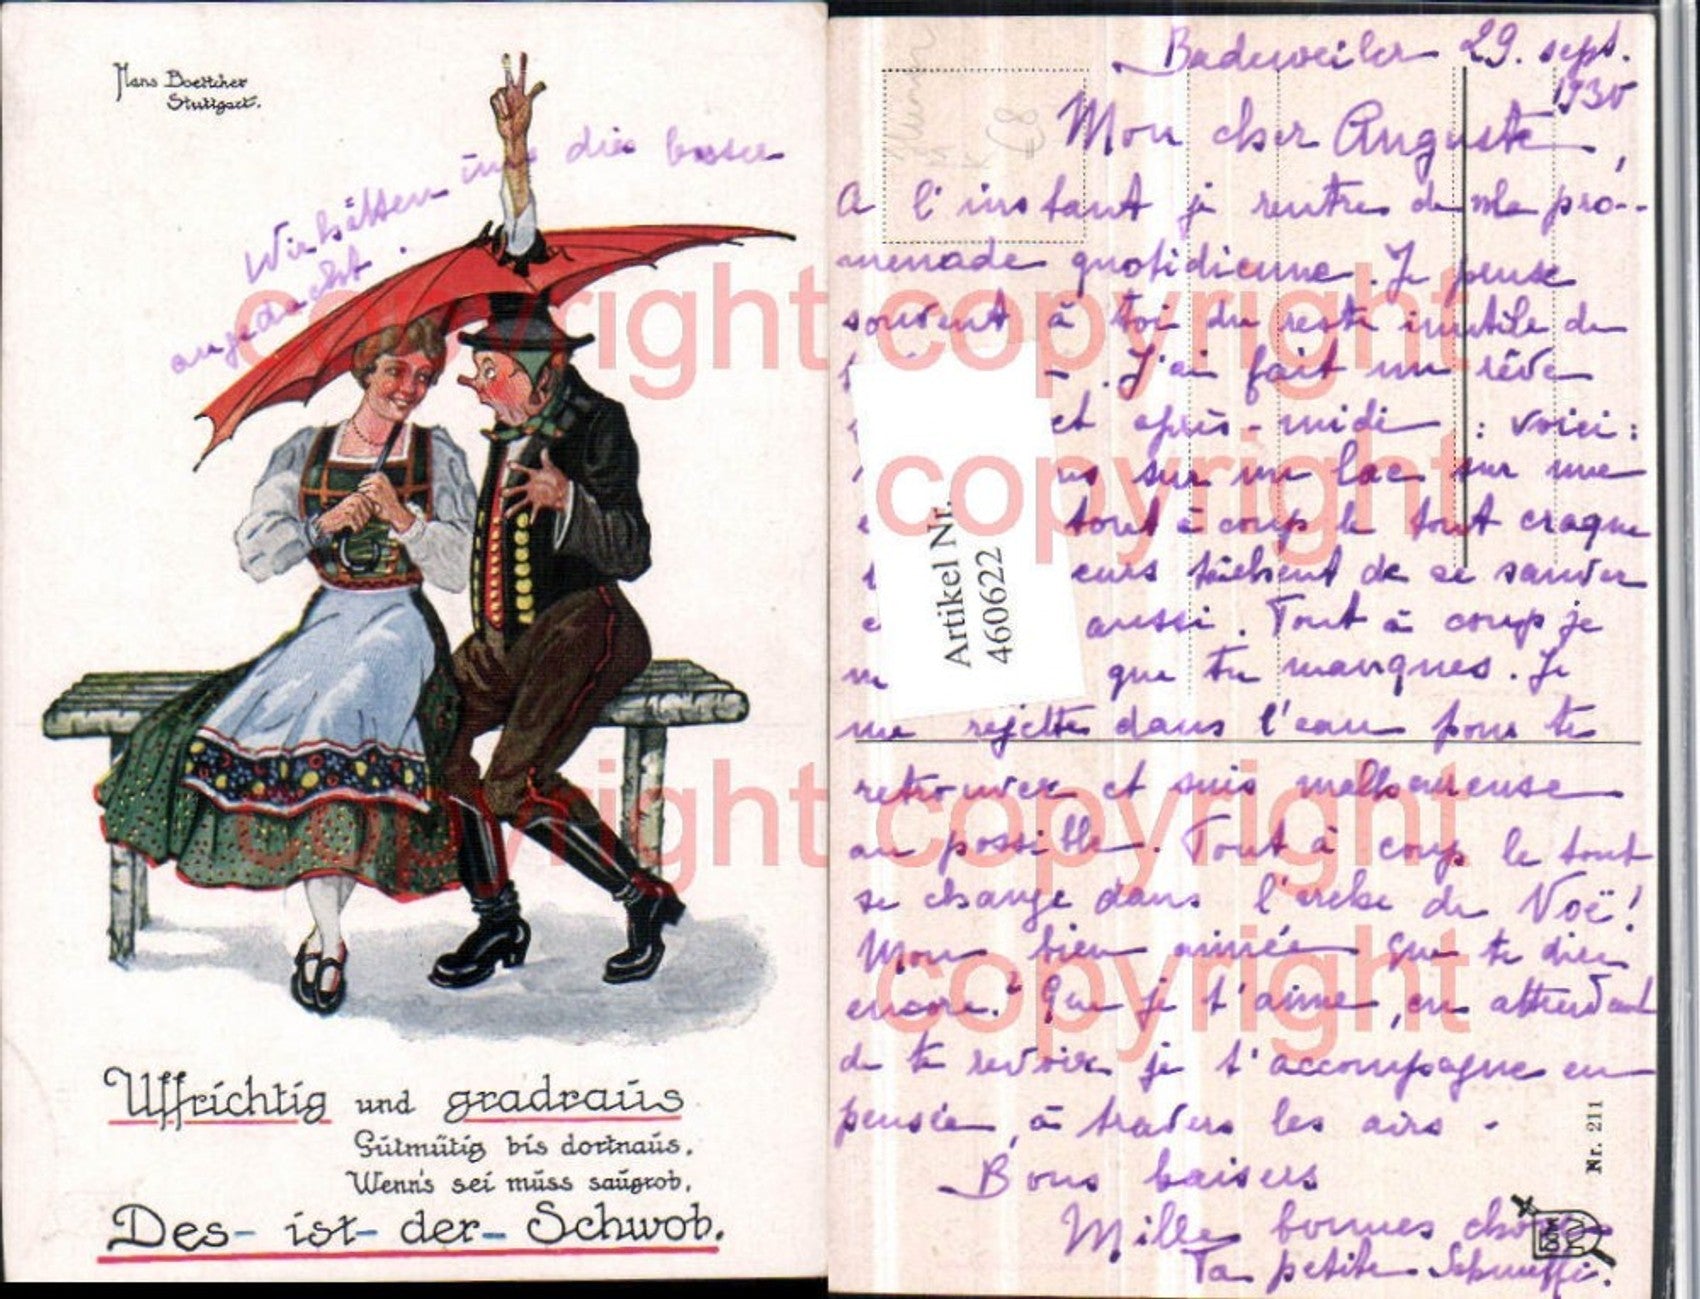 Hans Boettcher
Stuttgart.
Wir hätten uns die besser
angedacht.
Uffrichtig und gradraus
Gütmütig bis dortnaus,
Wenn's sei muss saugrob,
Des- ist- der- Schwob.
copyright copyright
copyright
copyright copyright
copyright
Badenweiler 29. sept.
1930
Mon cher Auguste,
A l'instant je rentre de ma pro-
menade quotidienne. Je pense
souvent à toi du reste inutile de
. J'ai fait un rêve
cet après-midi : voici:
sur un lac sur une
tout à coup le tout craque
eurs tâchent de se sauver
aussi. Tout à coup je
que tu manques. Je
me rejette dans l'eau pour te
retrouver et suis malheureuse
au possible. Tout à coup le tout
se change dans l'arche de Noë!
Mon bien aimée que te dire
encore? Que je t'aime, en attendant
de te revoir je t'accompagne en
pensée, à travers les airs.
Bons baisers
Mille bonnes choses
Ta petite
Artikel Nr.
460622
Nr. 211